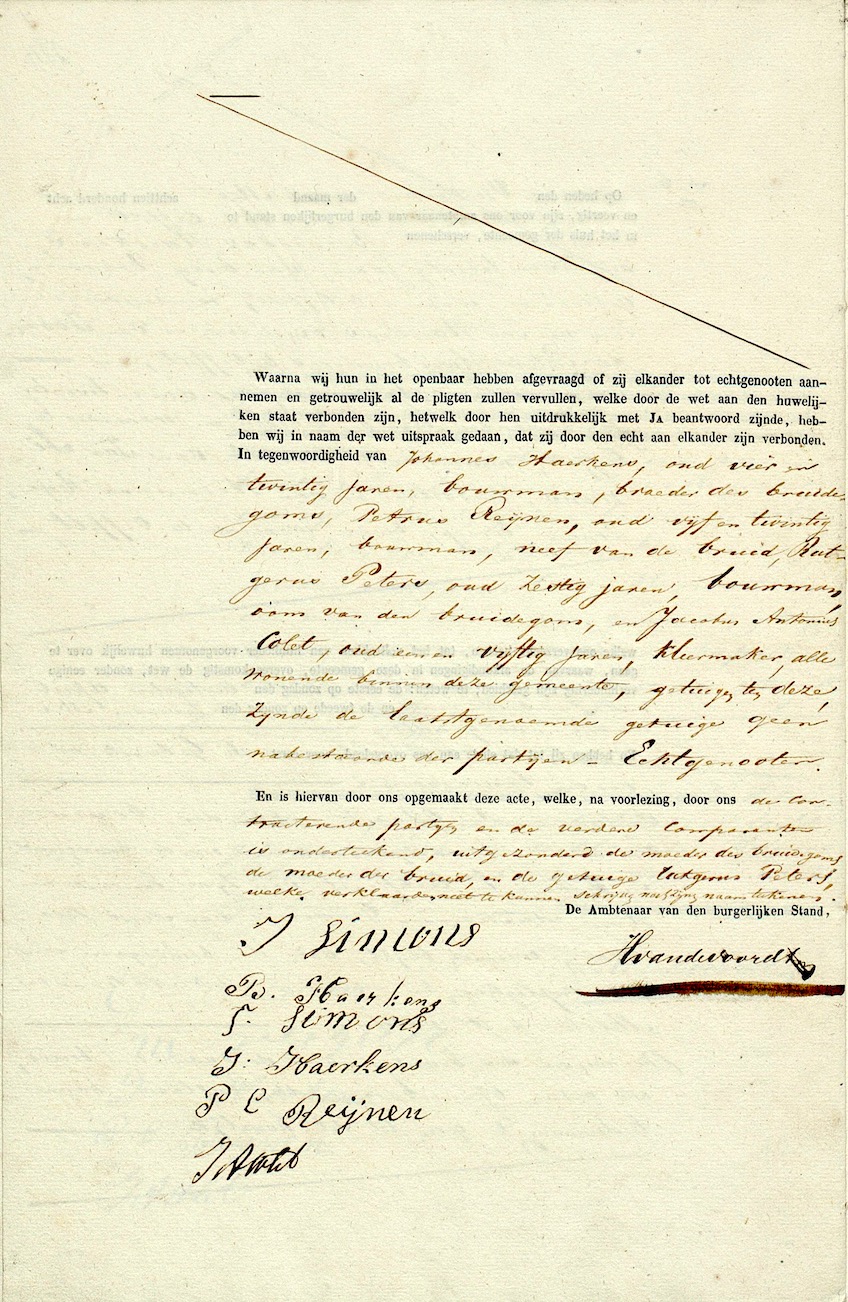 Waarna wij hun in het openbaar hebben afgevraagd of zij elkander tot echtgenooten aan-
nemen en getrouwelijk al de pligten zullen vervullen, welke door de wet aan den huwelij-
ken staat verbonden zijn, hetwelk door hen uitdrukkelijk met JA beantwoord zijnde, heb-
ben wij in naam der wet uitspraak gedaan, dat zij door den echt aan elkander zijn verbonden.
In tegenwoordigheid van Johannes Haerkens, oud vier en
twintig jaren, bouwman, broeder des bruide-
goms, Petrus Reijnen, oud vijf en twintig
jaren, bouwman, neef van de bruid, Rut-
gerus Peters, oud zestig jaren, bouwman,
oom van den bruidegom, en Jacobus Antonius
Colet, oud een en vijftig jaren, kleermaker, alle
wonende binnen deze gemeente, getuigen ten deze,
zijnde de laatstgenoemde getuige geen
nabestaande der partijen - Echtgenooten.
En is hiervan door ons opgemaakt deze acte, welke, na voorlezing, door ons de con-
tracterende partijen en de verdere Comparanten
is onderteekend, uitgezonderd de moeder des bruidegoms
de moeder der bruid, en de getuige Rutgerus Peters,
welke verklaarden niet te kunnen schrijven naamteekenen.
De Ambtenaar van den burgerlijken Stand,
Hvandevoordt
J Simons
B. Haerkens
F. Simons
J. Haerkens
P C Reijnen
JAColet